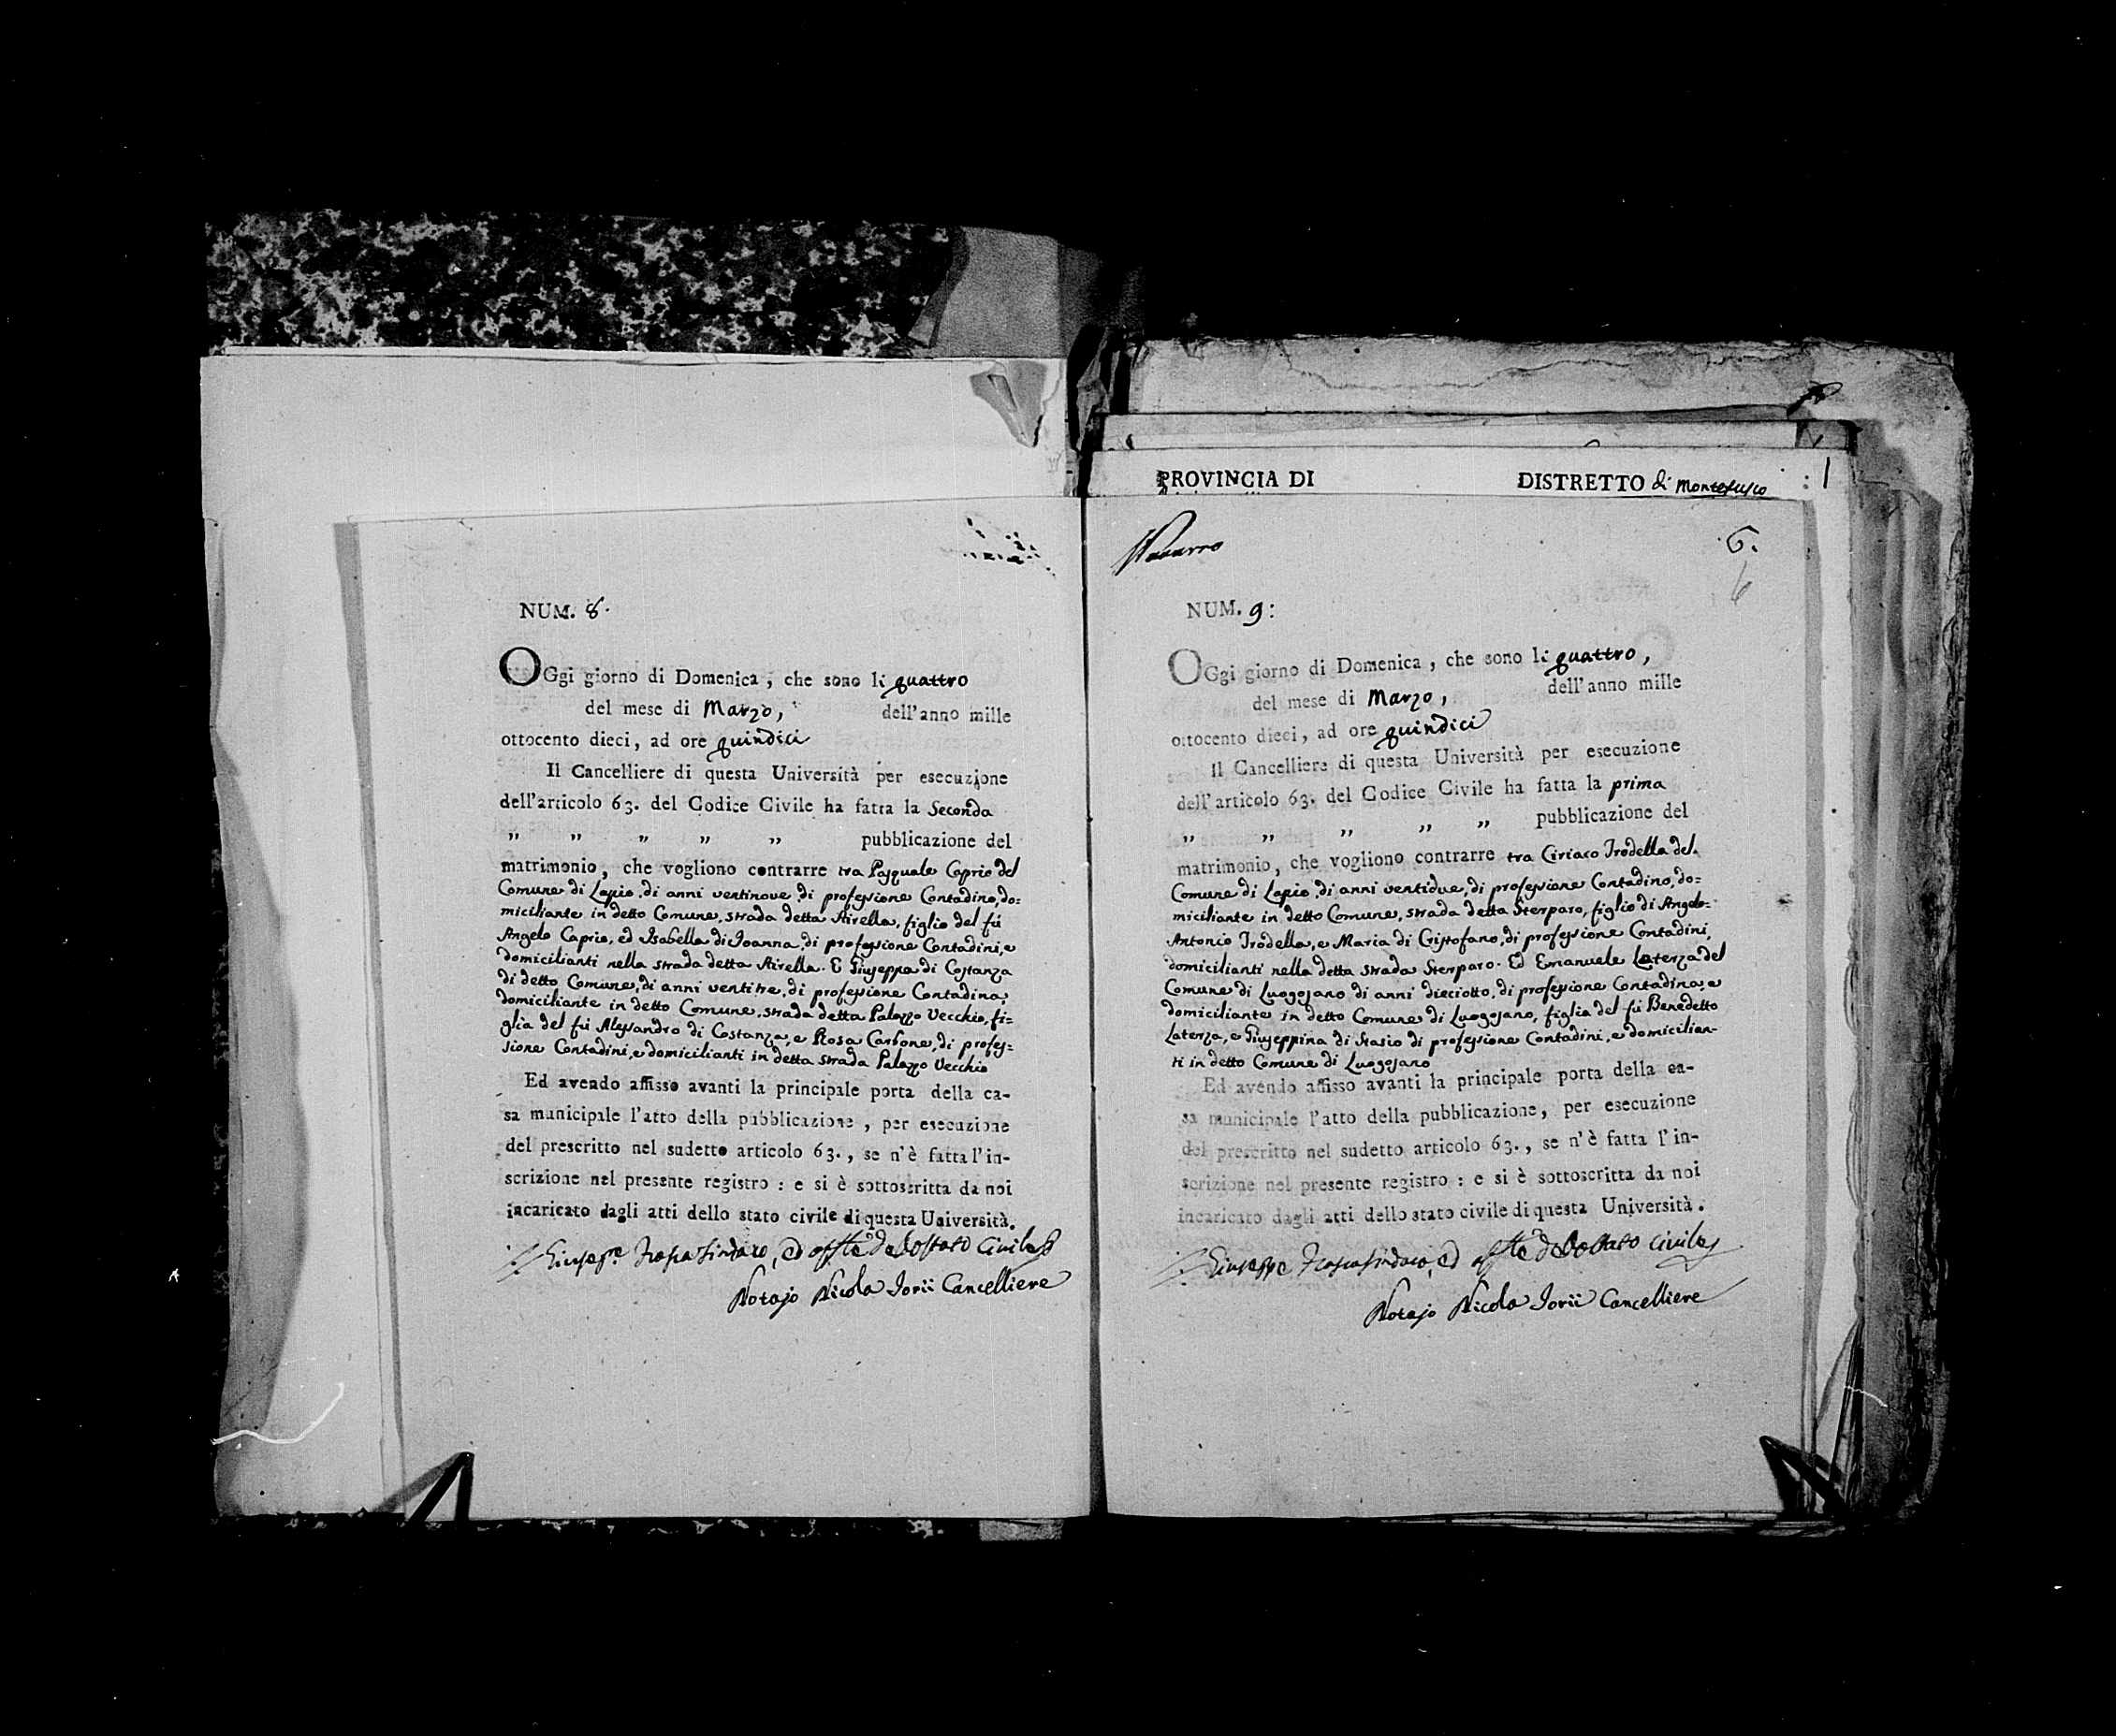 NUM. 8.
OGgi giorno di Domenica, che sono li quattro
del mese di Marzo, dell'anno mille
ottocento dieci, ad ore quindici
Il Cancelliere di questa Università per esecuzione
dell'articolo 63. del Codice Civile ha fatta la Seconda
„ „ „ „ „ pubblicazione del
matrimonio, che vogliono contrarre tra Pasquale Caprio del
Comune di Lapio, di anni ventinove, di professione Contadino, do=
miciliante in detto Comune, strada detta Airella, figlio del fù
Angelo Caprio, ed Isabella di Joanna, di professione Contadini, e
domicilianti nella strada detta Airella. E Giuseppa di Costanza
di detto Comune, di anni ventitre, di professione Contadina,
domiciliante in detto Comune, strada detta Palazzo Vecchio, fi=
glia del fù Alessandro di Costanza, e Rosa Carbone, di profes=
sione Contadini, e domicilianti in detta strada Palazzo Vecchio
Ed avendo affisso avanti la principale porta della ca-
sa municipale l'atto della pubblicazione, per esecuzione
del prescritto nel sudetto articolo 63., se n'è fatta l'in-
scrizione nel presente registro: e si è sottoscritta da noi
incaricato dagli atti dello stato civile di questa Università.
Sindaco, ed dello Stato Civile
Notajo Nicola Iorii Cancelliere
PROVINCIA DI DISTRETTO di Montefusco 1
6.
6
NUM. 9:
OGgi giorno di Domenica, che sono li quattro,
del mese di Marzo, dell'anno mille
ottocento dieci, ad ore quindici
Il Cancelliere di questa Università per esecuzione
dell'articolo 63. del Codice Civile ha fatta la prima
„ „ „ „ „ pubblicazione del
matrimonio, che vogliono contrarre tra Ciriaco Trodella del
Comune di Lapio, di anni ventidue, di professione Contadino, do=
miciliante in detto Comune, strada detta Sterparo, figlio di Angelo=
Antonio Trodella, e Maria di Cristofano, di professione Contadini,
domicilianti nella detta strada Sterparo. Ed Emanuele Laterza del
Comune di Luogosano di anni dieciotto, di professione Contadina, e
domiciliante in detto Comune di Luogosano, figlia del fù Benedetto
Laterza, e Giuseppina di Stasio di professione Contadini, e domicilian-
ti in detto Comune di Luogosano
Ed avendo affisso avanti la principale porta della ca-
sa municipale l'atto della pubblicazione, per esecuzione
del prescritto nel sudetto articolo 63., se n'è fatta l'in-
scrizione nel presente registro: e si è sottoscritta da noi
incaricato dagli atti dello stato civile di questa Università.
Giuseppe Sindaco, ed dello Stato Civile
Notajo Nicola Iorii Cancelliere